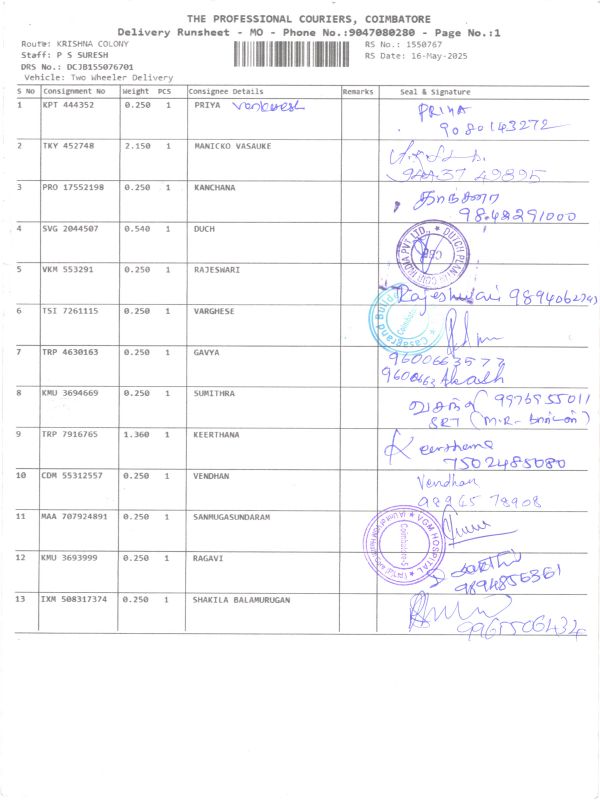 THE PROFESSIONAL COURIERS, COIMBATORE
Delivery Runsheet - MO - Phone No.:9047080280 - Page No.:1
Route: KRISHNA COLONY RS No.: 1550767
Staff: P S SURESH RS Date: 16-May-2025
DRS No.: DCJB155076701
Vehicle: Two Wheeler Delivery
S No Consignment No Weight PCS Consignee Details Remarks Seal & Signature
1 KPT 444352 0.250 1 PRIYA Venkatesh PRIYA
9080143272
2 TKY 452748 2.150 1 MANICKO VASAUKE
49895
3 PRO 17552198 0.250 1 KANCHANA காஞ்சனா
9842291000
4 SVG 2044507 0.540 1 DUCH
5 VKM 553291 0.250 1 RAJESWARI Rajeshwari
6 TSI 7261115 0.250 1 VARGHESE
Casagrand
7 TRP 4630163 0.250 1 GAVYA 9600663573
Akash
8 KMU 3694669 0.250 1 SUMITHRA வசந்தி 9976955011
SRT
9 TRP 7916765 1.360 1 KEERTHANA Keerthana
7502485080
10 CDM 55312557 0.250 1 VENDHAN Vendhan
98965 78908
11 MAA 707924891 0.250 1 SANMUGASUNDARAM
VGM HOSPITAL
12 KMU 3693999 0.250 1 RAGAVI
9894856361
13 IXM 508317374 0.250 1 SHAKILA BALAMURUGAN
9965506434